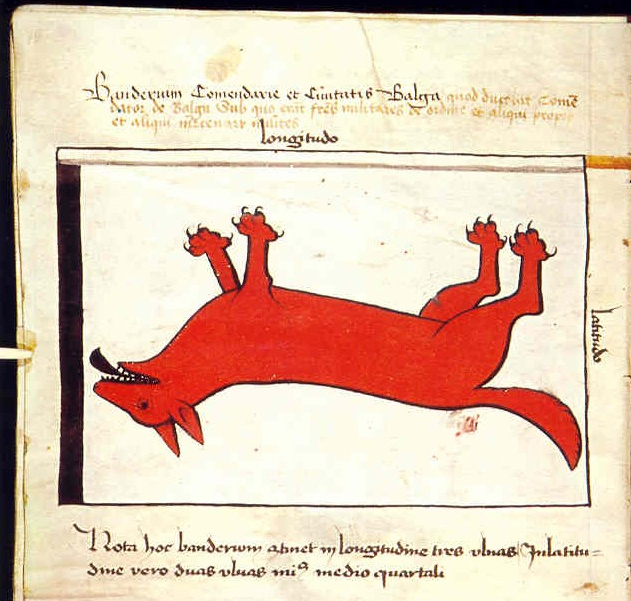 Banderium Comendarie et Civitatis Balga quod ducebat Comē
dator de Balga Sub quo erāt frēs militares de ordine et aliqui proprii
et aliqui mercenarii milites
longitudo
latitudo
Nota hoc banderium atinet in longitudine tres ulnas Inlatitu=
dine vero duas ulnas min9 medio quartali